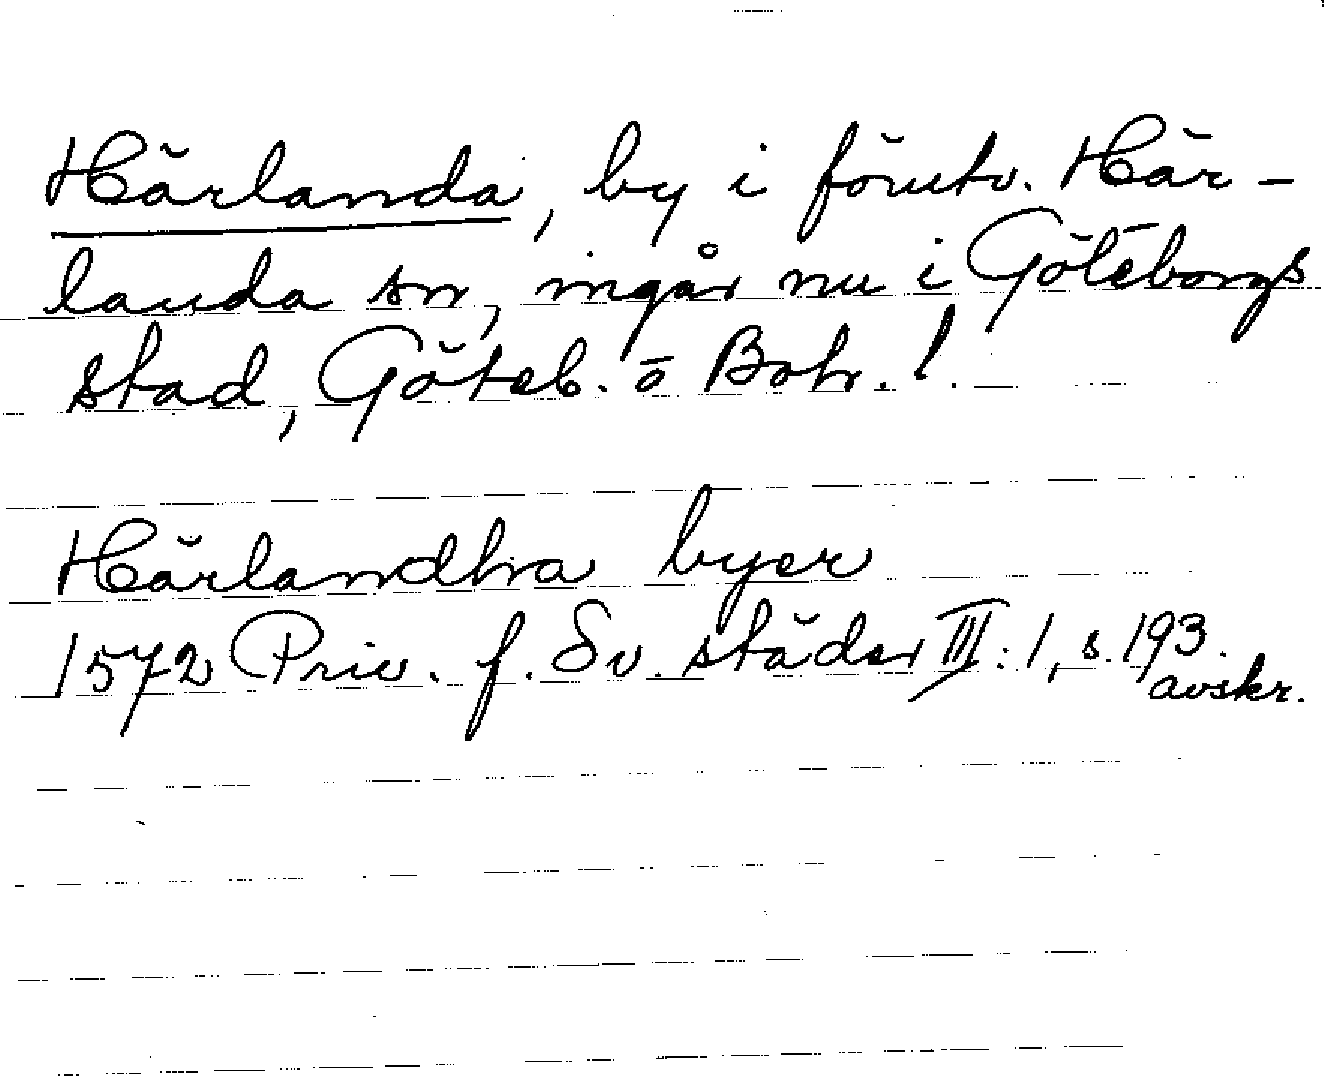 Härlanda, by i förutv. Här-
landa sn, ingår nu i Göteborgs
stad, Göteb. o Boh. l.
Härlandha byer
1572 Priv. f. Sv. städer III: 1, s. 193.
avskr.